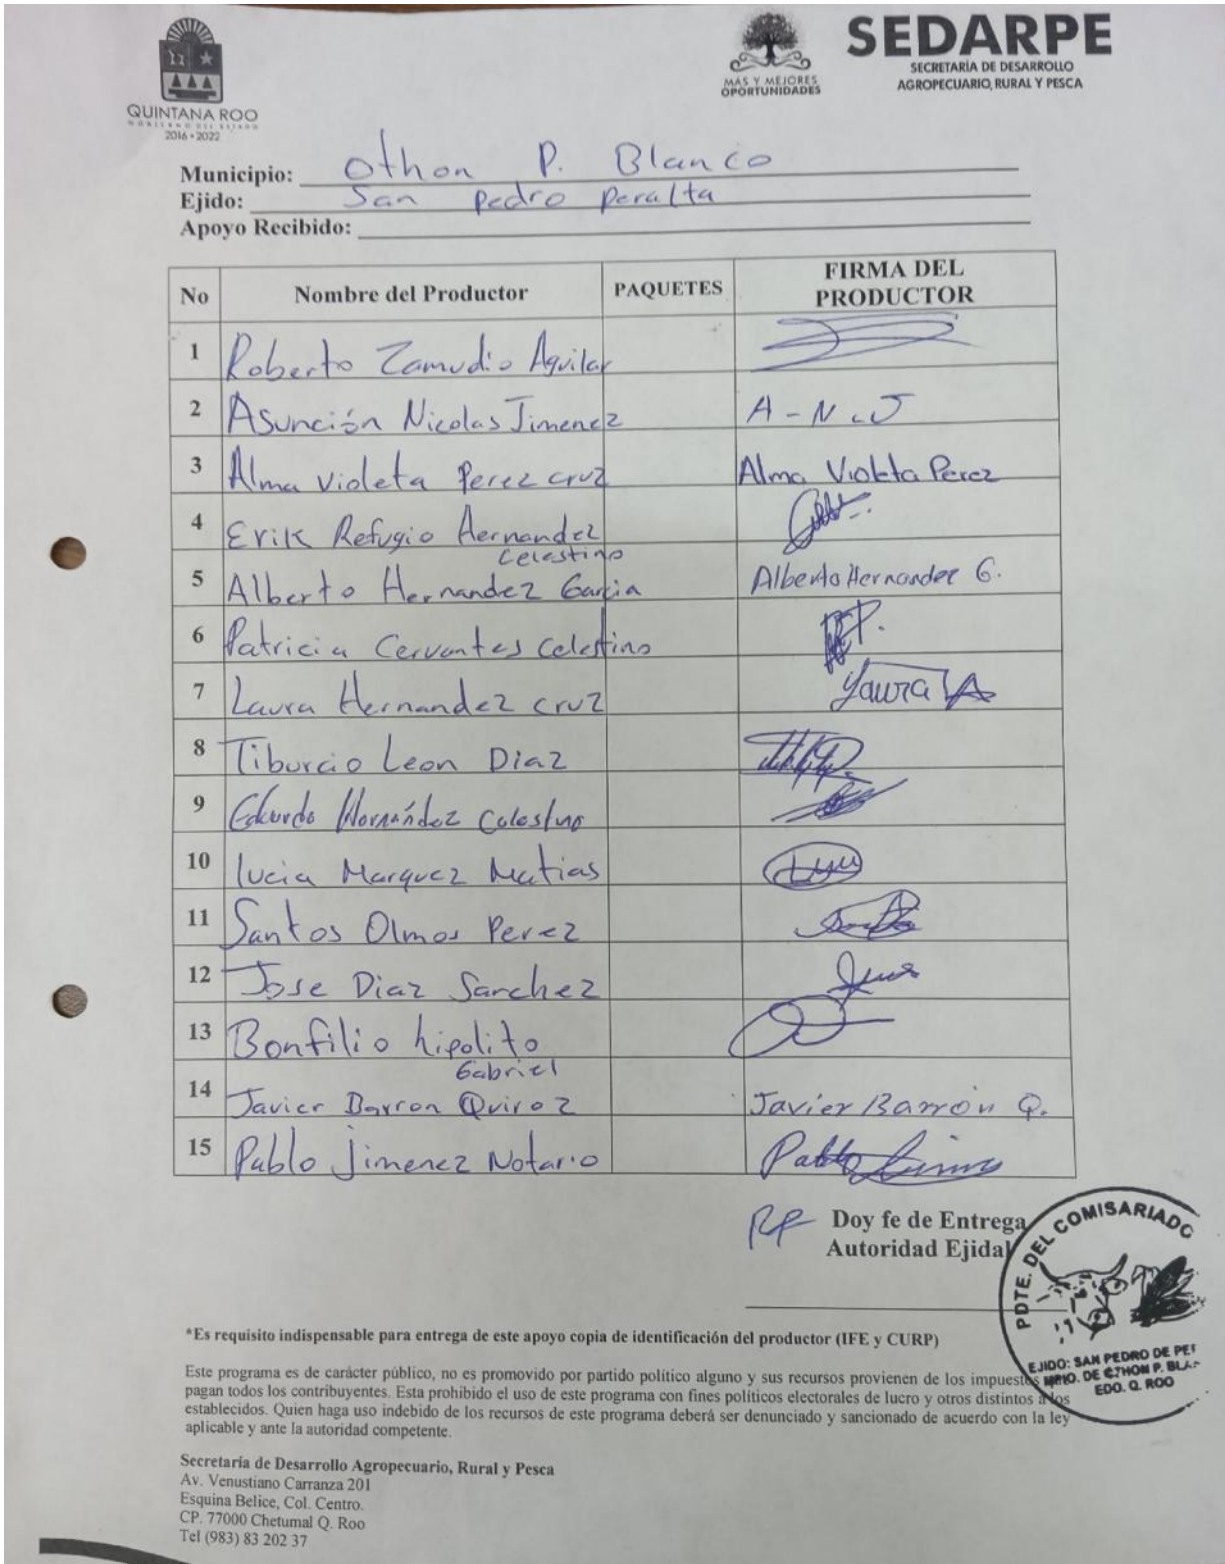 QUINTANA ROO
GOBIERNO DEL ESTADO
2016 • 2022
MÁS Y MEJORES
OPORTUNIDADES
SEDARPE
SECRETARÍA DE DESARROLLO
AGROPECUARIO, RURAL Y PESCA
Municipio: Othon P. Blanco
Ejido: San Pedro Peralta
Apoyo Recibido:
No Nombre del Productor PAQUETES FIRMA DEL PRODUCTOR
1 Roberto Zamudio Aguilar
2 Asunción Nicolas Jimenez A-N.J
3 Alma Violeta Perez cruz Alma Violeta Perez
4 Erik Refugio Hernandez
Celestino
5 Alberto Hernandez Garcia Alberto Hernandez G.
6 Patricia Cervantes Celestino
7 Laura Hernandez cruz Laura
8 Tiburcio Leon Diaz
9 Eduardo Hernández Celestino
10 lucia Marquez Matias
11 Santos Olmos Perez
12 Jose Diaz Sanchez
13 Bonfilio hipolito
Gabriel
14 Javier Barron Quiroz Javier Barrón Q.
15 Pablo Jimenez Notario Pablo
Doy fe de Entrega
Autoridad Ejidal
PDTE. DEL COMISARIADO
EJIDO: SAN PEDRO DE PE
MPIO. DE OTHON P. BLA
EDO. Q. ROO
*Es requisito indispensable para entrega de este apoyo copia de identificación del productor (IFE y CURP)
Este programa es de carácter público, no es promovido por partido político alguno y sus recursos provienen de los impuestos
pagan todos los contribuyentes. Esta prohibido el uso de este programa con fines políticos electorales de lucro y otros distintos a los
establecidos. Quien haga uso indebido de los recursos de este programa deberá ser denunciado y sancionado de acuerdo con la ley
aplicable y ante la autoridad competente.
Secretaría de Desarrollo Agropecuario, Rural y Pesca
Av. Venustiano Carranza 201
Esquina Belice, Col. Centro.
CP. 77000 Chetumal Q. Roo
Tel (983) 83 202 37